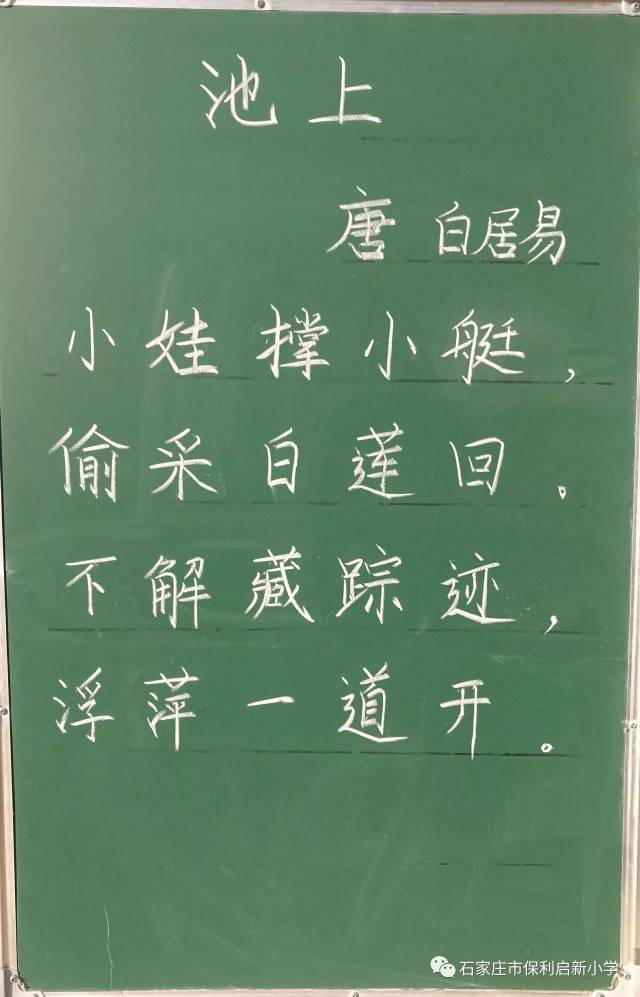 池上
唐 白居易
小娃撑小艇，
偷采白莲回。
不解藏踪迹，
浮萍一道开。
石家庄市保利启新小学